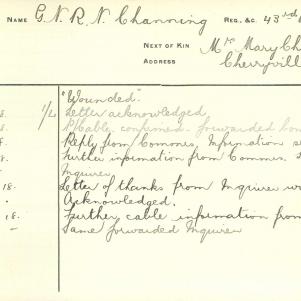 NAME G. N. R. N. Channing REG. &C. 43rd
NEXT OF KIN Mrs Mary Ch
ADDRESS Cherryvill
"Wounded".
8. 1/2 Letter acknowledged
P/Cable confirmed. forwarded
Reply from Comons. Information
Further information from Commrs.
Inquirer
18. Letter of thanks from Inquirer
Acknowledged.
18. Further cable information from
Same forwarded Inquirer